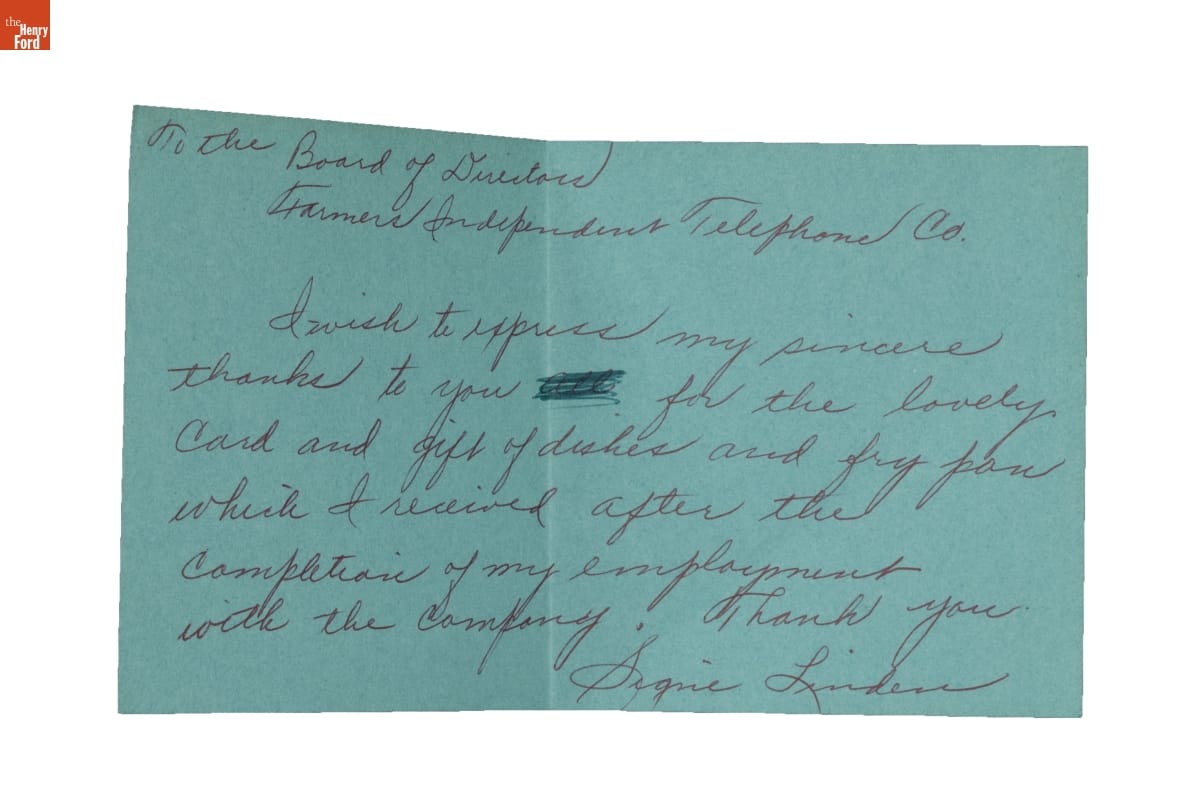 the
Henry
Ford
To the Board of Directors
Farmers Independent Telephone Co.
I wish to express my sincere
thanks to you all for the lovely
Card and gift of dishes and fry pan
which I received after the
Completion of my employment
with the Company. Thank you
Signe Linden